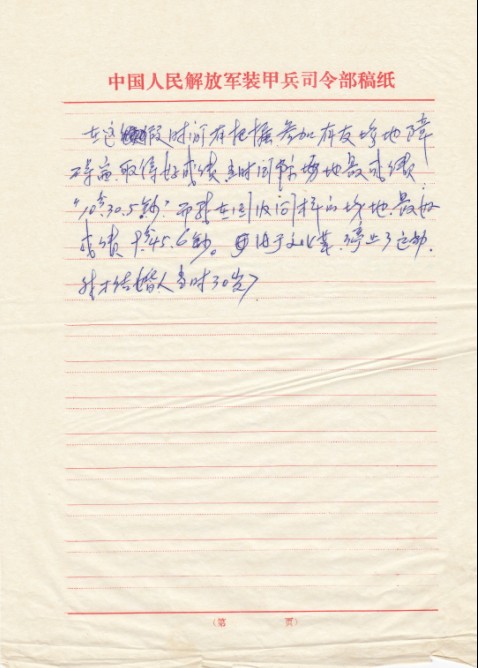 中国人民解放军装甲兵司令部稿纸
在这假时间有把握参加有友场地障
碍赛.取得好成绩.当时国际场地最好成绩
"10分30.5秒"而我在同级同样的场地.最好
成绩 9分45.6秒。由于文化革.停止了运动.
我才结婚人当时30岁
(第 页)